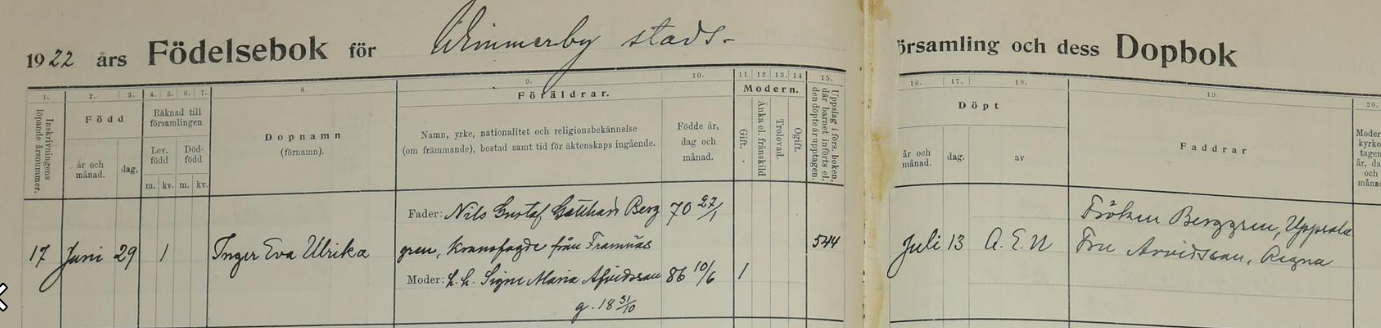 1922 års Födelsebok för Wimmerby stads-
örsamling och dess Dopbok
1. 2. 3. 4. 5. 6. 7. 8. 9. 10. 11 12. 13. 14 15.
Inskrivningens löpande årsnummer.
Född
år och månad.
dag.
Räknad till församlingen
Lev. född
Död- född
m. kv. m. kv.
Dopnamn
(förnamn).
Föräldrar.
Namn, yrke, nationalitet och religionsbekännelse
(om främmande), bostad samt tid för äktenskaps ingående.
Födde år,
dag och
månad.
Modern.
Gift.
Änka el. frånskild
Trolovad.
Ogift.
Uppslag i förs. boken, där barnet införts el. den döpte är upptagen.
16. 17. 18. 19. 20.
Döpt
år och månad.
dag.
av
Faddrar
Moder
kyrko
tagen
år, da
och
måna
Fader: Nils Gustaf Gotthard Berg 70 27/1
17 Juni 29 1 Inger Eva Ulrika gren, kronofogde från Framnäs 544
Moder: h. h. Signe Maria Afvidsson 86 10/6 1
g. 18 31/10
Fröken Berggren, Uppsala
Juli 13 A. E. N Fru Arvidsson,